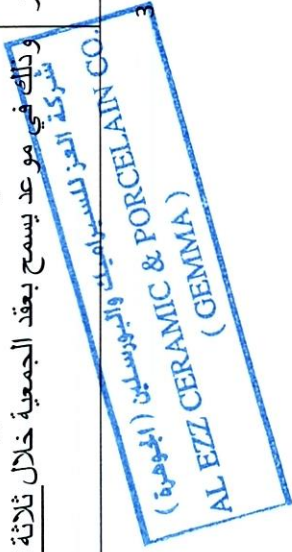 وذلك في موعد يسمح بعقد الجمعية خلال ثلاثة
شركة العز للسيراميك والبورسلين ( الجوهرة )
AL EZZ CERAMIC & PORCELAIN CO.
( GEMMA )
3